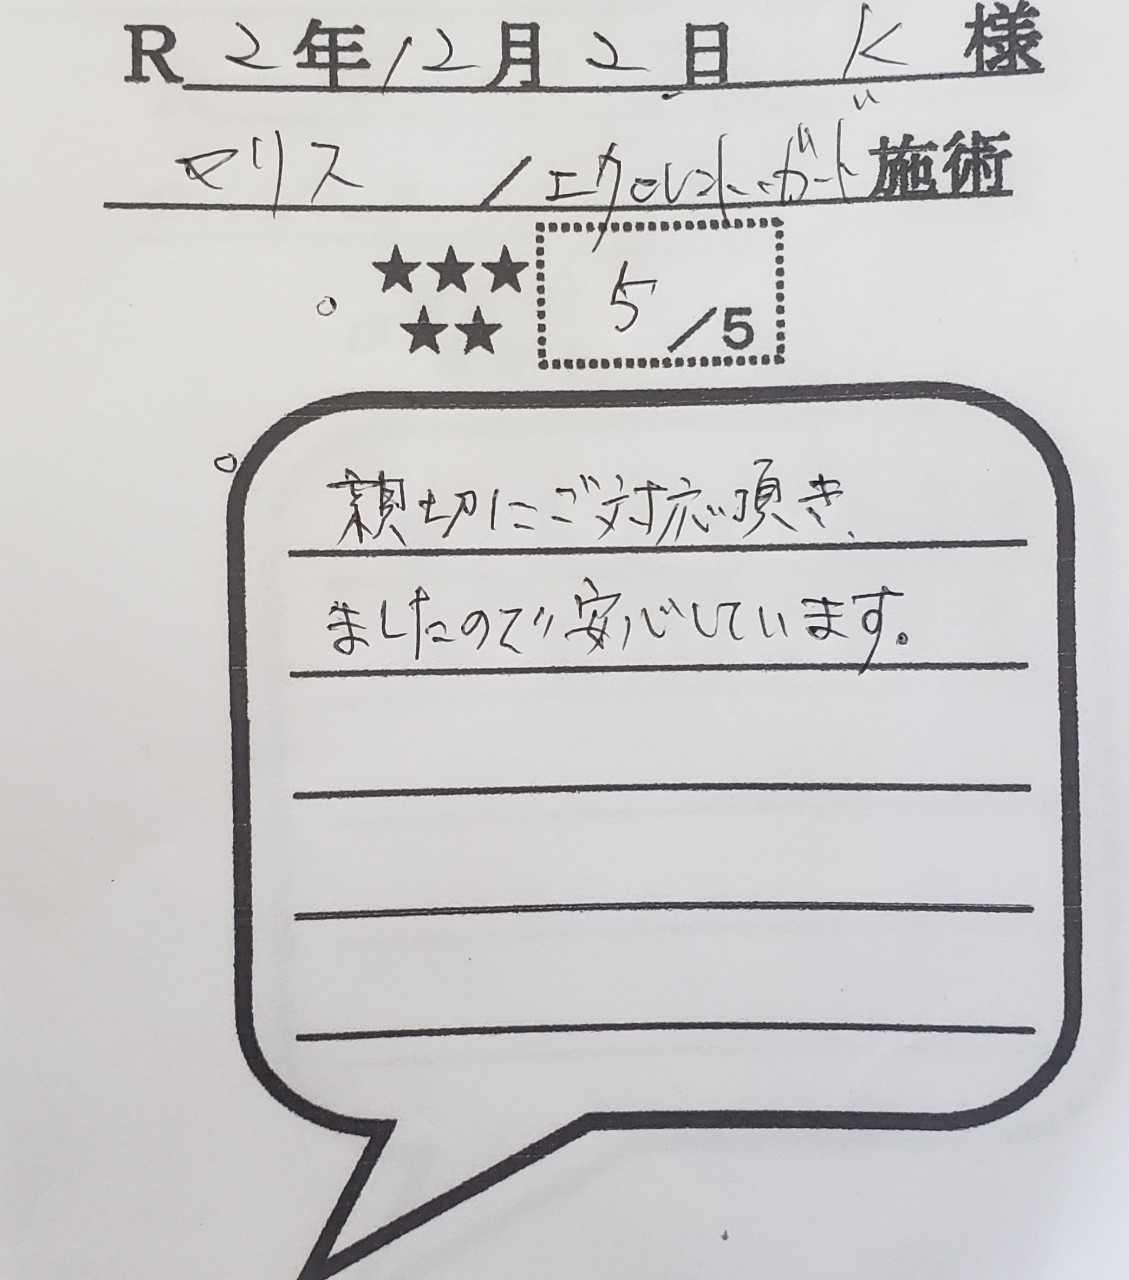 R 2年12月2日 K 様
ヤリス / エクスレント・ガード施術
★★★
★★
5/5
親切にご対応頂き、
ましたので安心しています。